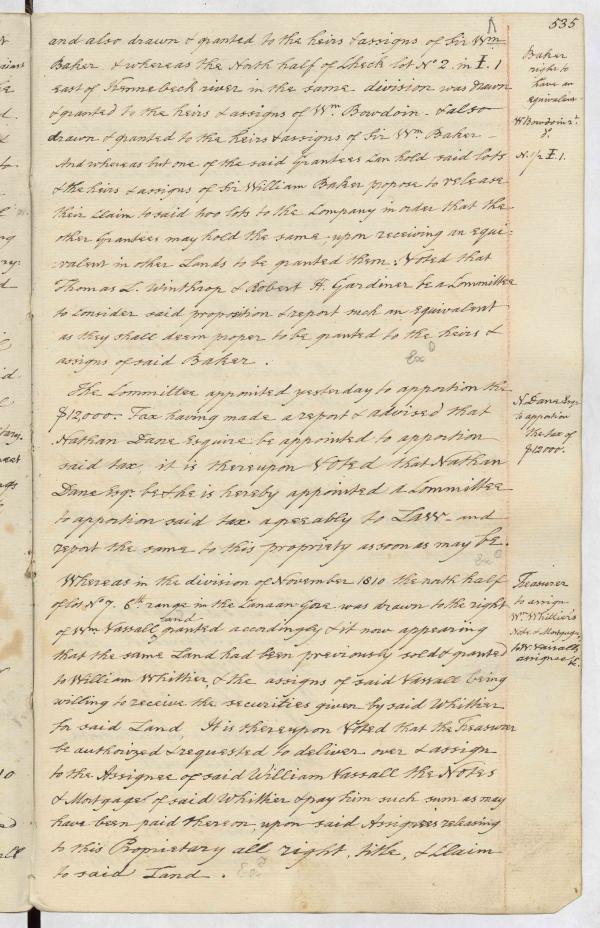 535
and also drawn & granted to the heirs & assigns of Sir Wm
Baker & whereas the North half of Check lot No 2. in I. 1
east of Kennebeck river in the same division was drawn
& granted to the heirs & assigns of Wm Bowdoin. & also
drawn & granted to the heirs & assigns of Sir Wm Baker
And whereas but one of the said Grantees can hold said lots
& the heirs & assigns of Sir William Baker propose to release
their Claim to said two lots to the Company in order that the
other Grantees may hold the same, upon receiving an equi-
-valent in other Lands to be granted them: Voted that
Thomas L. Winthrop & Robert H. Gardiner be a Committee
to consider said proposition & report such an equivalent
as they shall deem proper to be granted to the heirs &
assigns of said Baker.
Exd
Baker
right to
have an
equivalent
W Bowdoin's
do.
N. 1/2 I. 1.
The Committee appointed yesterday to apportion the
$12,000. Tax having made a report & advised that
Nathan Dane Esquire be appointed to apportion
said tax, it is thereupon Voted that Nathan
Dane Esqr. be & he is hereby appointed a Committee
to apportion said tax agreeably to Law and
report the same to this propriety as soon as may be.
Exd
N. Dane Esqr
to apportion
the tax of
$12000.
Whereas in the division of November 1810 the north half
of lot No 7. 6th range in the Canaan Gore was drawn to the right
of Wm Vassall and granted accordingly & it now appearing
that the same Land had been previously sold & granted
to William Whittier, & the assigns of said Vassall being
willing to receive the securities given by said Whittier
for said Land, It is thereupon Voted that the Treasurer
be authorized & requested to deliver over & assign
to the Assignee of said William Vassall the Notes
& Mortgages of said Whittier & pay him such sum as may
have been paid thereon upon said Assignees releasing
to this Proprietary all right, title, & Claim
to said Land.
Exd
Treasurer
to assign
Wm Whittier's
Note & Mortgage
to W. Vassall's
assignee &c.